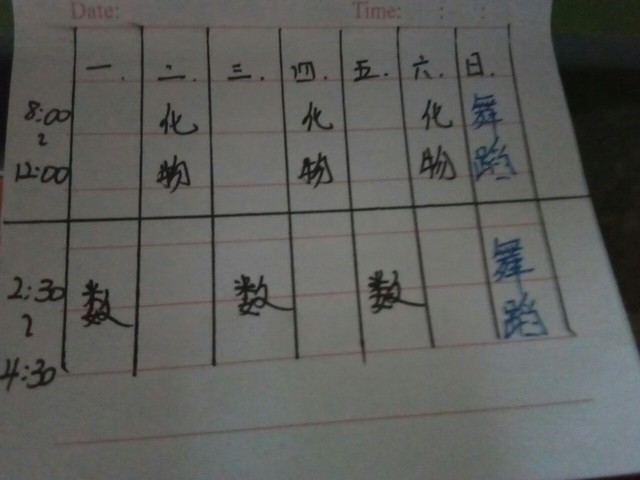 Date: Time: : :
一. 二. 三. 四. 五. 六. 日.
8:00 化 化 化 舞
~
12:00 物 物 物 蹈
2:30 舞
~ 数 数 数
4:30 蹈